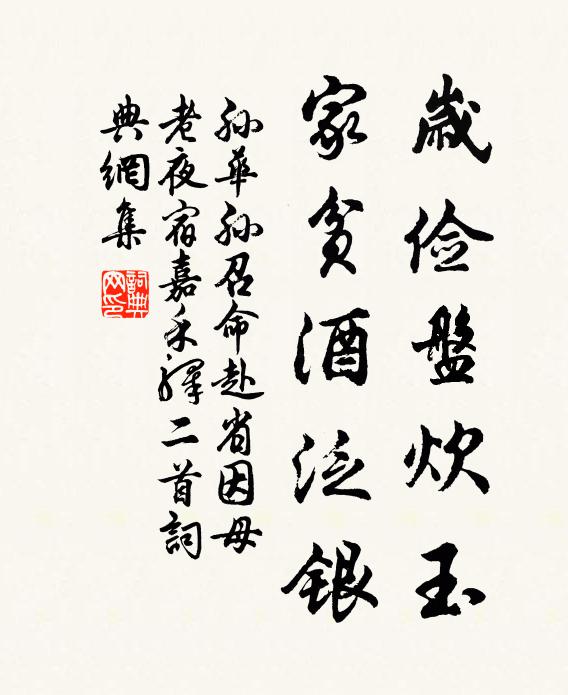 歲儉盤炊玉
家貧酒泛銀
孫華孫召命赴省因母
老夜宿嘉禾驛二首詞
典網集
詞典
网印